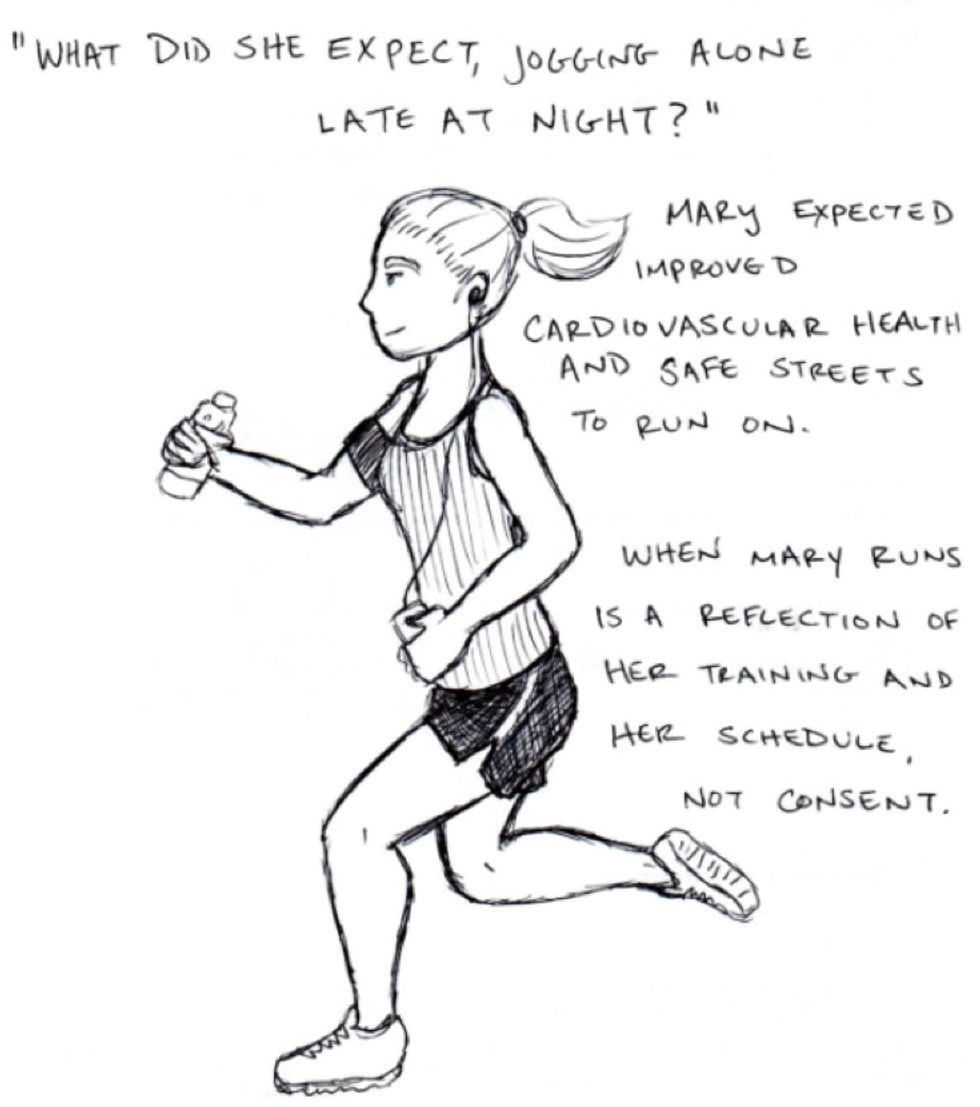 "WHAT DID SHE EXPECT, JOGGING ALONE
LATE AT NIGHT?"
MARY EXPECTED
IMPROVED
CARDIOVASCULAR HEALTH
AND SAFE STREETS
TO RUN ON.
WHEN MARY RUNS
IS A REFLECTION OF
HER TRAINING AND
HER SCHEDULE,
NOT CONSENT.